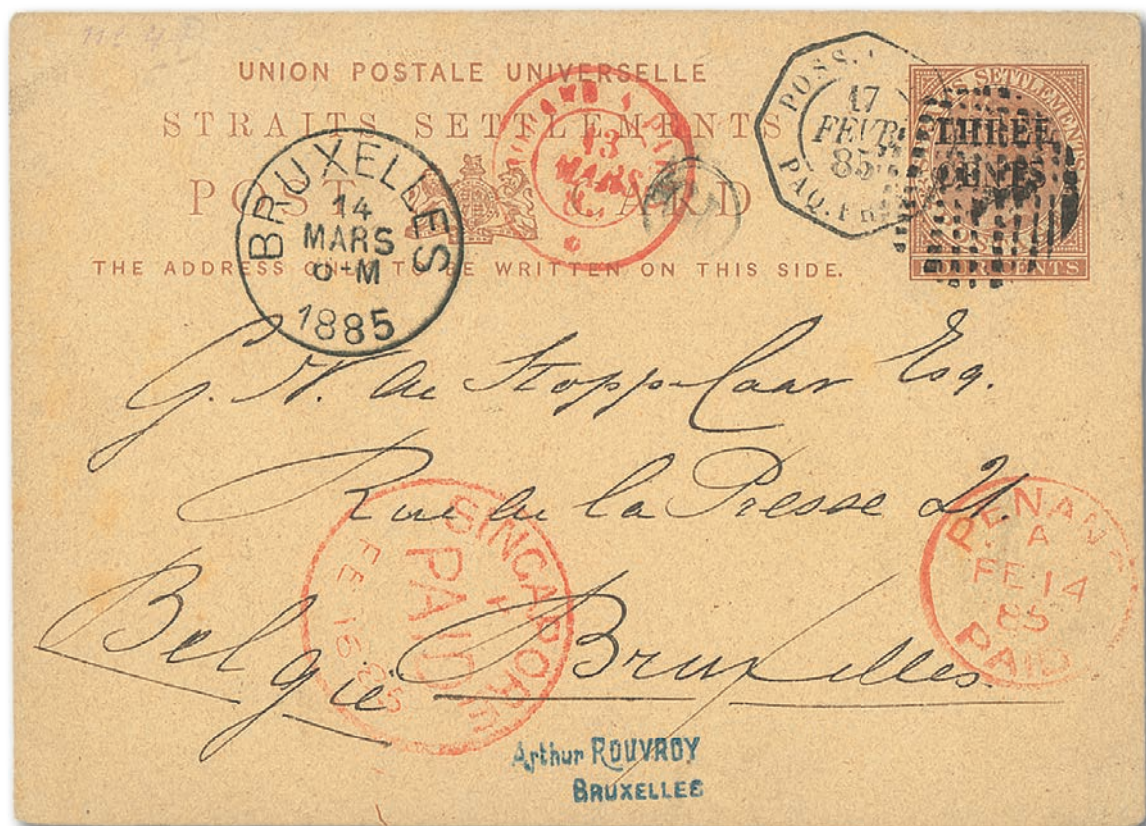 UNION POSTALE UNIVERSELLE
STRAITS SETTLEMENTS
POST CARD
THE ADDRESS ONLY TO BE WRITTEN ON THIS SIDE.
BRUXELLES
14
MARS
1885
13
MARS
POSS.
17
FEVR.
85
PAQ. FR.
THREE
CENTS
G. N. de Stoppelaar Esq.
Rue de la Presse 21.
België Bruxelles
SINGAPORE
PAID
FE 16
85
PENANG
A
FE 14
85
PAID
Arthur ROUVROY
BRUXELLES